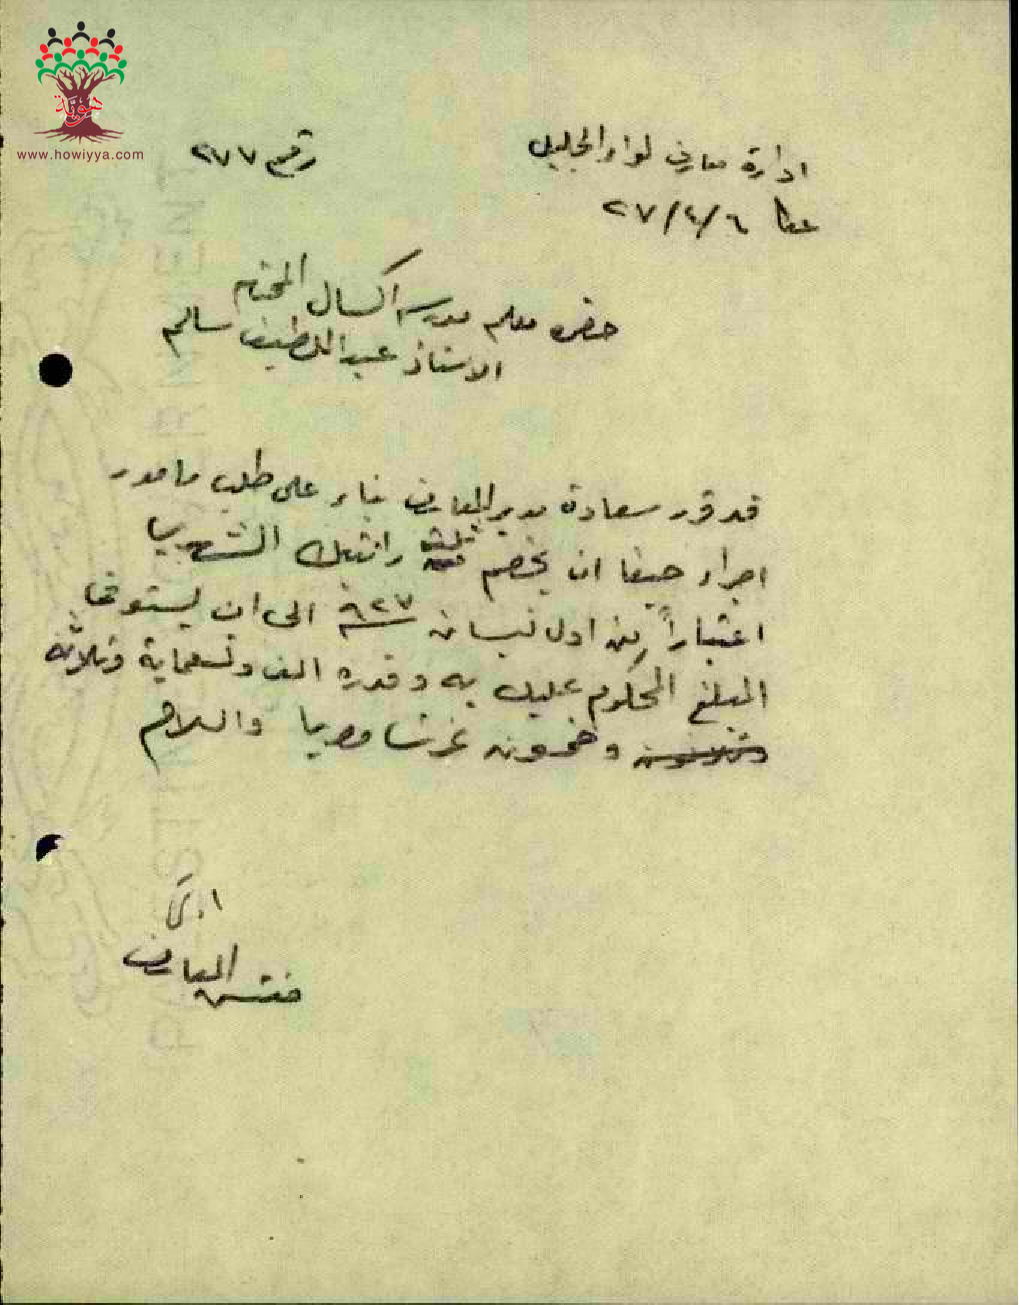 هوية
www.howiyya.com
ادارة معارف لواء الجليل
رقم ٢٧٧
عكا ٢٧/٤/٦
حضرة معلم مدرسة اكسال المحترم
الاستاذ عبد اللطيف سالم
قد قرر سعادة مدير المعارف بناء على طلب مامور
اجراء حيفا ان يخصم ثلث راتبك الشهري
اعتباراً من اول نيسان سنة ٩٢٧ الى ان يستوفى
المبلغ المحكوم عليك به وقدره الف وتسعماية وثلاثة
وخمسون غرشا مصريا والسلام
مفتش المعارف
PALESTINE GOVERNMENT